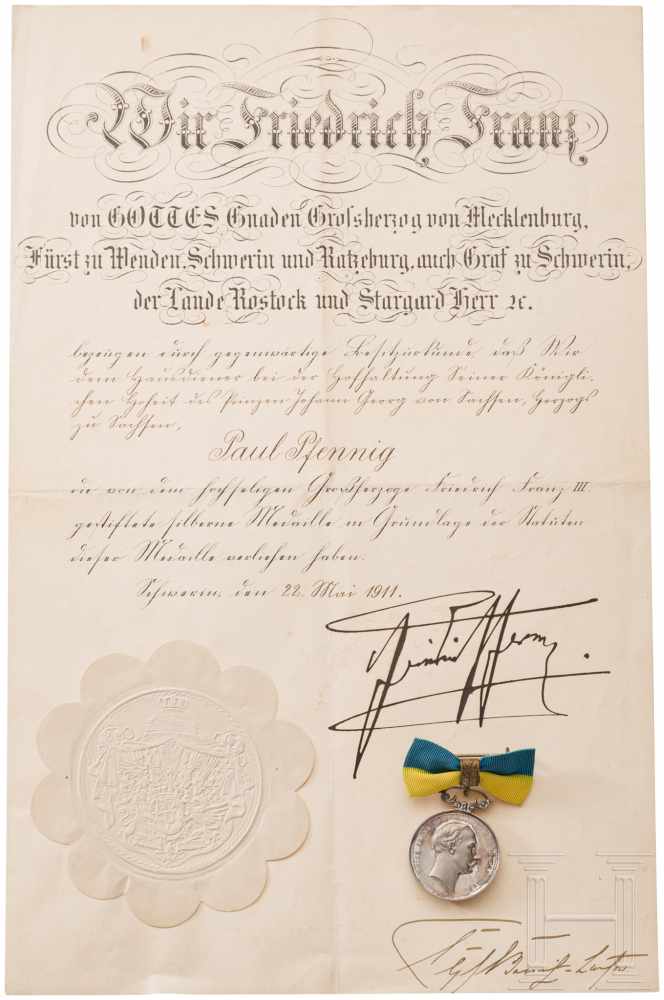 Wir Friedrich Franz
von GOTTES Gnaden Grofsherzog von Mecklenburg,
Fürst zu Wenden, Schwerin und Ratzeburg, auch Graf zu Schwerin,
der Lande Rostock und Stargard Herr ꝛc.
bezeugen durch gegenwärtige Besitzurkunde, daß Wir
dem Hausdiener bei der Hofhaltung Seiner Königli-
chen Hoheit des Prinzen Johann Georg von Sachsen, Herzogs
zu Sachsen,
Paul Pfennig
die von dem hochseligen Großherzoge Friedrich Franz III.
gestiftete silberne Medaille in Grundlage der Statuten
dieser Medaille verliehen haben.
Schwerin, den 22. Mai 1911.
Friedrich Franz